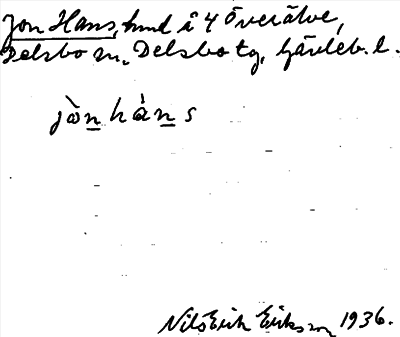 Jon Hans, hmd å 4 Överälve,
Delsbo sn. Delsbo tg, Gävleb. l.
jò̀n hàn s
Nils Erik Eriksson 1936.